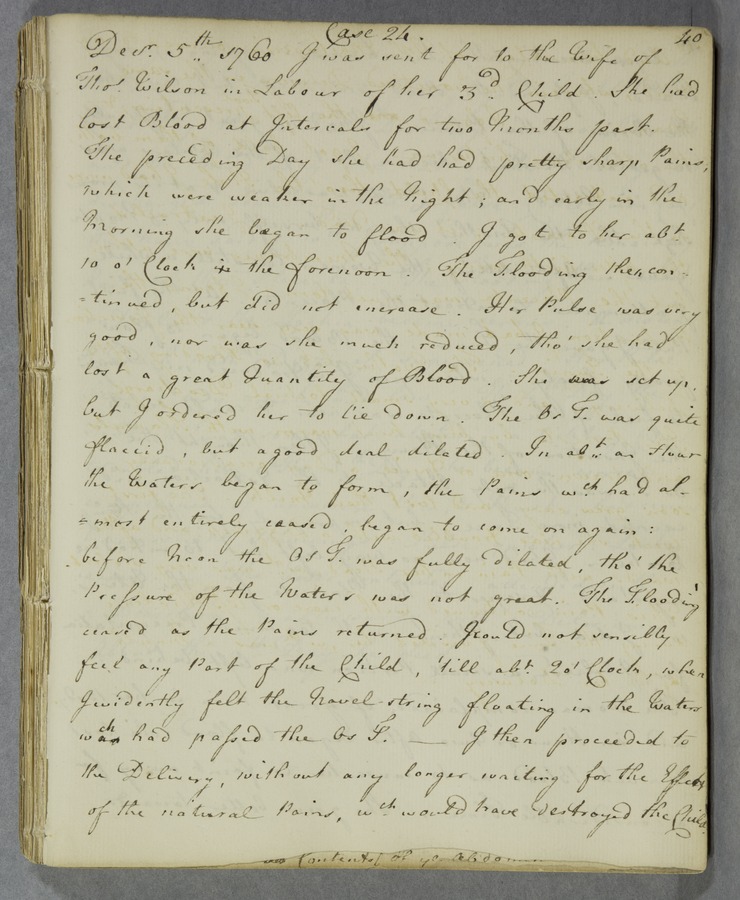 Case 24.
40
Decr. 5th. 1760 I was sent for to the Wife of
Thos. Wilson in Labour of her 3d. Child. She had
lost Blood at Intervals for two Months past.
The preceding Day she had had pretty sharp Pains,
which were weaker in the Night; and early in the
Morning she began to flood. I got to her abt.
10 o'Clock in the forenoon. The Flooding then con=
=tinued, but did not increase. Her Pulse was very
good, nor was she much reduced, tho' she had
lost a great Quantity of Blood. She was set up,
but I ordered her to lie down. The Os T. was quite
flaccid, but a good deal dilated. In abt. an Hour
the Waters began to form, the Pains wch. had al-
=most entirely ceased, began to come on again:
before Noon the Os T. was fully dilated, tho' the
Pressure of the Waters was not great. The Flooding
ceased as the Pains returned. I could not sensibly
feel any Part of the Child, 'till abt. 2 o'Clock, when
I evidently felt the Navel-string floating in the Waters
wch had passed the Os T. — I then proceeded to
the Delivery, without any longer waiting for the Effects
of the natural Pains, wch. would have destroyed the Child.
Contents of ye Abdomen